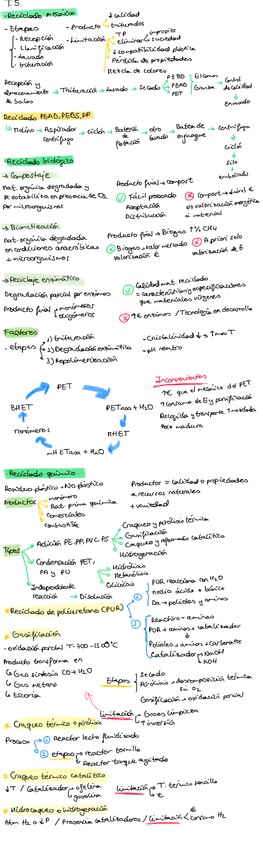 T.5.
• Reciclado mecánico
- Etapas
- Recepción
- Clasificación
- Lavado
- Trituración
- Producto
↓ calidad
triturados
- Limitación
Tª
impropios
eliminar suciedad
↓ compatibilidad plástica
Pérdida de propiedades
Mezcla de colores
Recepción y almacenamiento de balas → Trituración → Lavado → Secado
PEBD
PEAD
PET
Granza
Control de calidad
Ensacado
Reciclado PEAD, PEBD, PP
→ Molino → Aspirador centrífugo → Ciclón → Batería de flotación → Otro lavado → Batería de enjuague → Centrífuga
Ciclón
Silo
embalado
• Reciclado biológico
→ Compostaje
Mat. orgánica degradada y
se estabiliza en presencia de O₂
por microorganismos
Producto final → compost
Fácil procesado
Aceptación
Distribución
No valorización energética
ni material
→ Biometización
Mat. orgánica degradada
en condiciones anaeróbicas
+ microorganismos
Producto final → Biogás ↑% CH₄
Biogás → valor mercado
valorización E
A priori solo
valorización de E
→ Reciclaje enzimático
Degradación parcial por enzimas
Producto final
monómeros
oligómeros
Calidad mat. reciclado
= características y especificaciones
que materiales vírgenes
↑€ enzimas / Tecnología en desarrollo
Factores
• etapas
1) Trituración
2) Degradación enzimática
3) Repolimerización
- Cristalinidad ↓ ↑ mov T
- pH neutro
PET
PETasa + H₂O
MHET
mHETasa + H₂O
monómeros
BHET
Inconvenientes
↑€ que el mecánico del PET
↑ consumo de E y purificación
Recogida y transporte ↑ mercado
Poco madura
• Reciclado químico
Residuo plástico → No plástico
Productos
monómero
Mat. prima química
comerciales
combustible
Productos = calidad o propiedades
a recursos naturales
+ versiedad
Tipos
Adición PE, PP, PVC, PS
Craqueo y pirólisis térmica
Gasificación
Craqueo y reformado catalítico
Hidrogenación
Condensación PET,
PA y PU
Hidrólisis
Metanólisis
Glicólisis
Independiente
reacción → Disolución
• Reciclado de poliuretano (PUR)
1
PUR reacciona con H₂O
medio ácido o básico
Da → polioles y aminas
2
Reactivo = aminas
PUR + aminas + catalizador
Polioles + aminas + carbonatos
Catalizador → NaOH
KOH
* Gasificación
- oxidación parcial T = 700 - 1500ºC
Producto transforma en
↳ Gas síntesis CO + H₂O
↳ Gas metano
↳ Escoria
Etapas
Secado
Pirólisis → descomposición térmica
sin O₂
Gasificación → oxidación parcial
limitación → Gases limpieza
↑ inversión
* Craqueo térmico o pirólisis
Proceso
1 Reactor lecho fluidificado
2 etapas → reactor tornillo
↳ Reactor tanque agitado
* Craqueo térmico catalítico
↓ T / Catalizador → olefina
gasolina
limitación → T. térmico sencillo
* Hidrocraqueo o Hidrogenación
Atm H₂ o ↓P / Presencia catalizadores / limitación
€
consumo H₂